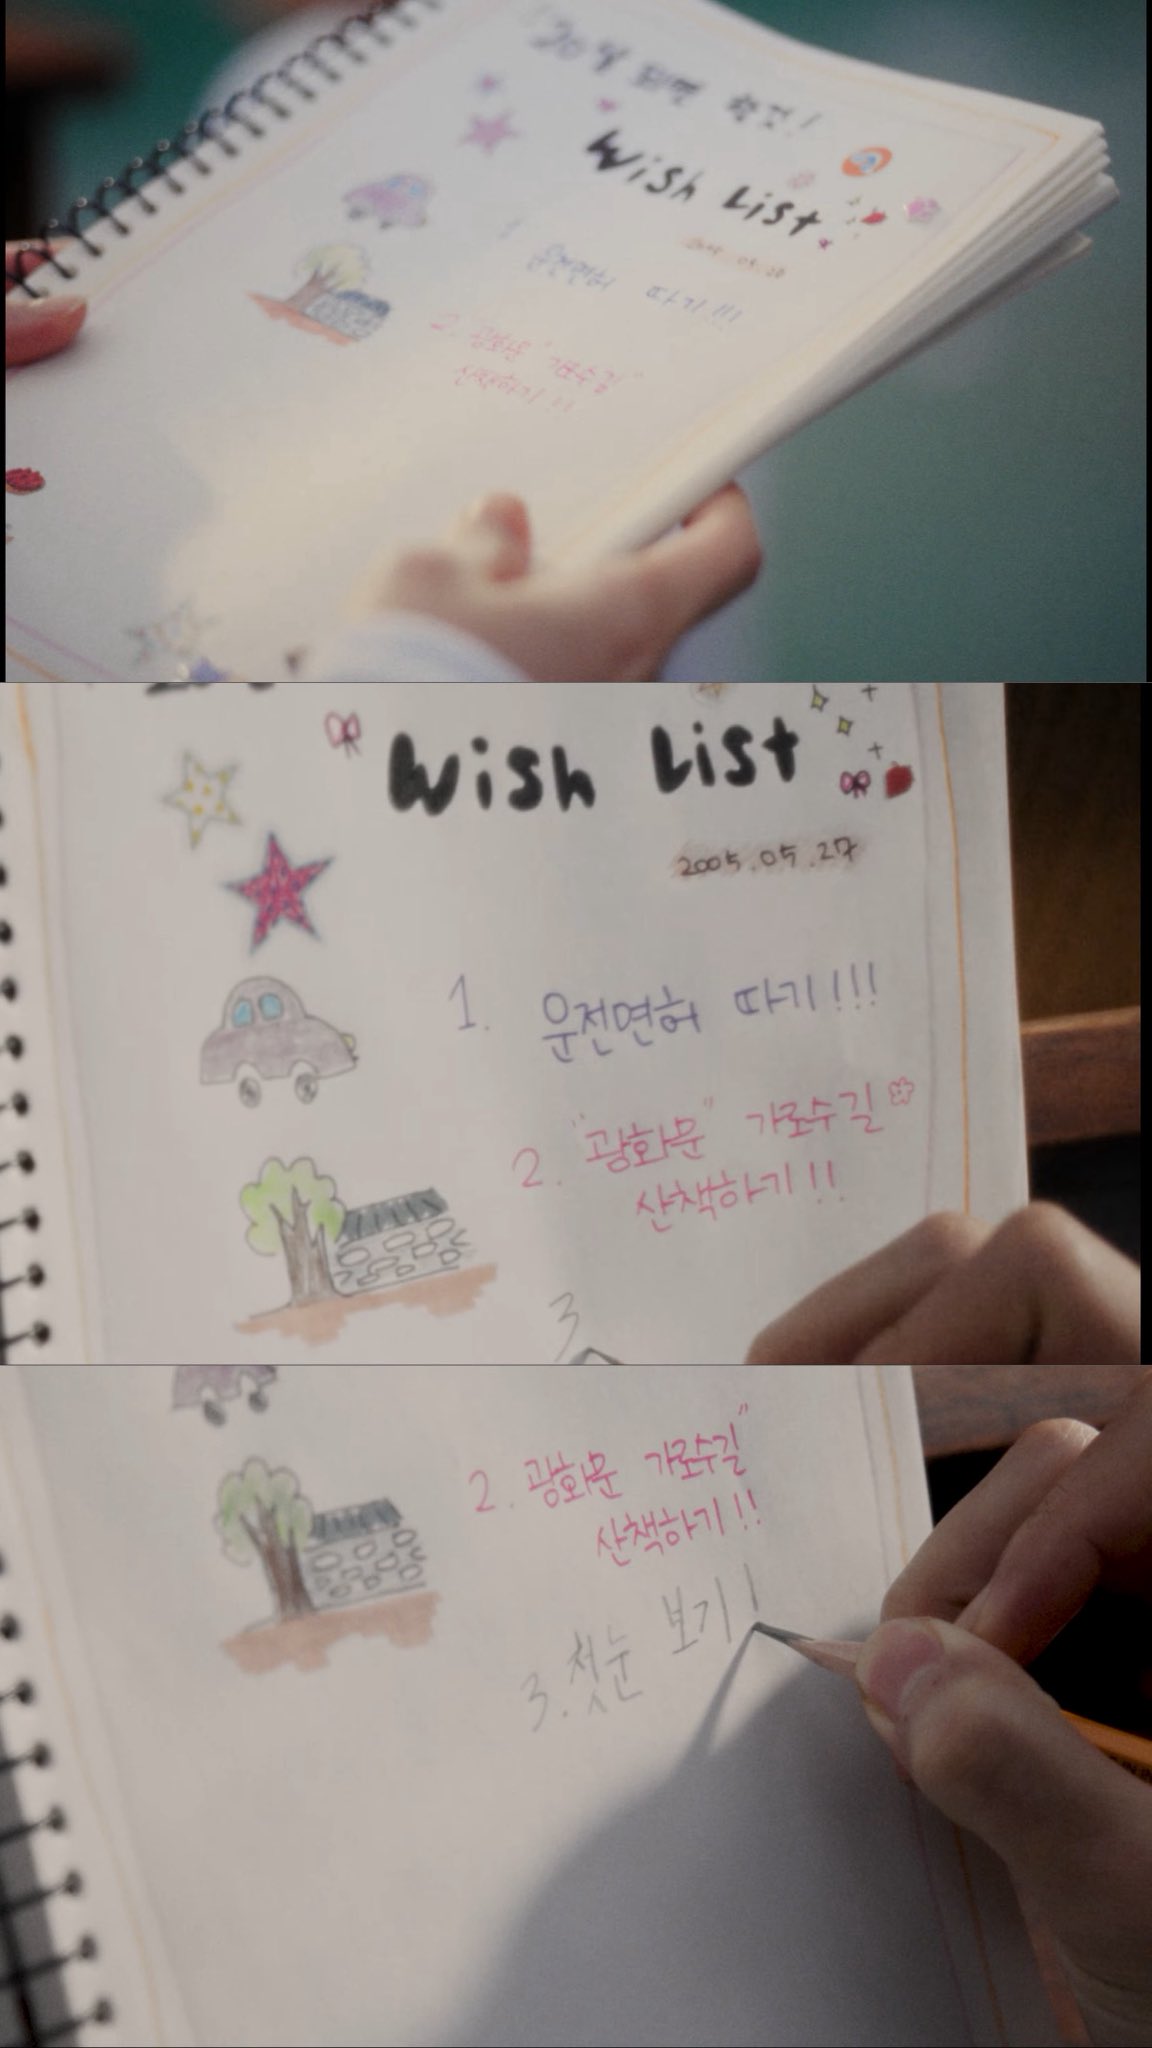 Wish List
1 운전면허 따기!!!
2. 광화문 "가로수길"
산책하기!!
Wish List
2005.05.27
1. 운전면허 따기!!!
2. "광화문" 가로수길
산책하기!!
3
2. 광화문 가로수길"
산책하기!!
3. 첫눈 보기!